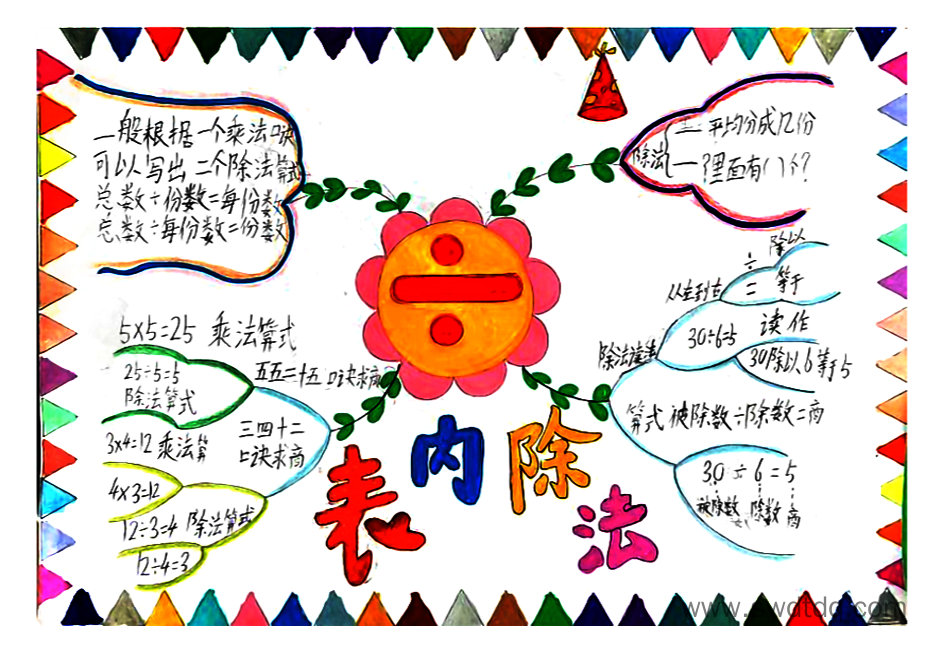 一般根据一个乘法口诀
可以写出二个除法算式
总数÷份数=每份数
总数÷每份数=份数
除法
平均分成几份
里面有几个?
除以
÷
从左到右
=
等于
30÷6=5
读作
30除以6等于5
除法读法
算式 被除数÷除数=商
30÷6=5
被除数 除数 商
5×5=25 乘法算式
25÷5=5
除法算式
五五二十五 口诀求商
3×4=12 乘法算
三四十二
口诀求商
4×3=12
12÷3=4 除法算式
12÷4=3
表内除法